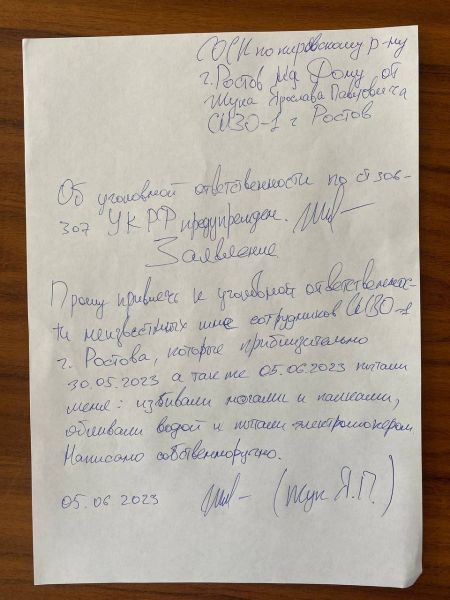 СОСК по кировскому р-ну
г. Ростов н/д Дону от
Жука Ярослава Павловича
СИЗО-1 г Ростов
Об уголовной ответственности по ст 306-
307 УК РФ предупрежден.
Заявление
Прошу привлечь к уголовной ответственнос-
ти неизвестных мне сотрудников СИЗО-1
г. Ростова, которые приблизительно
30.05.2023 а так же 05.06.2023 пытали
меня: избивали ногами и палками,
обливали водой и пытали электрошокером
Написано собственноручно.
05.06 2023 (Жук Я.П.)